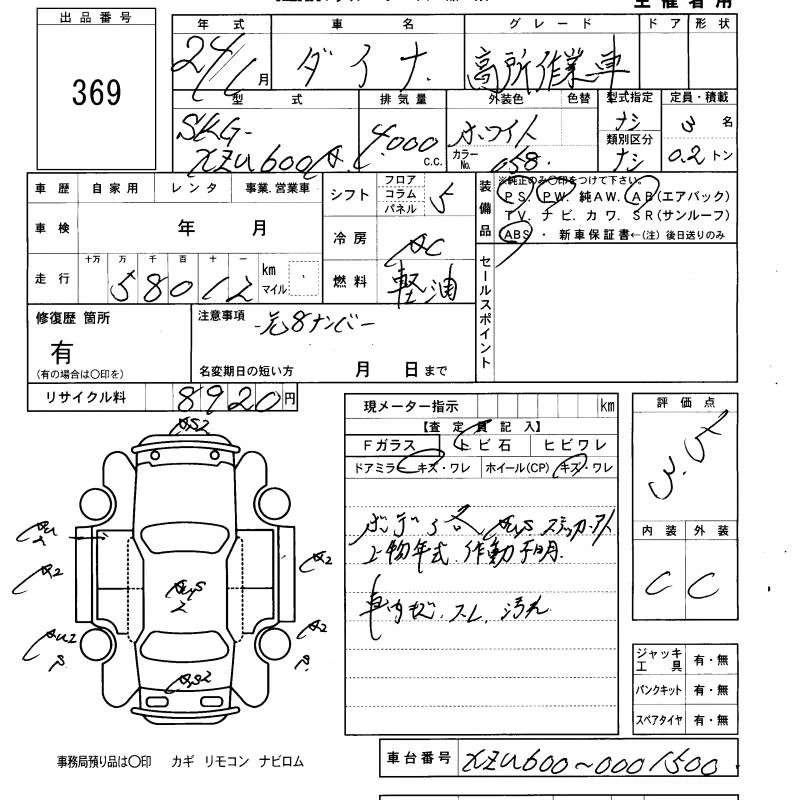 主催者用
出品番号
369
年式 車名 グレード ドア 形状
24/1月 ダイナ 高所作業車
型式 排気量 外装色 色替 型式指定 定員・積載
SKG-XZU600A 4,000c.c. ホワイト ナシ 3名
カラーNo. 058 類別区分 ナシ 0.2トン
車歴 自家用 レンタ 事業.営業車
車検 年 月
走行 十万 万 千 百 十 一 km マイル
58012
シフト フロア コラム パネル 5
冷房 AC
燃料 軽油
装備品 ※純正のみ〇印をつけて下さい。
PS. PW. 純AW. AB(エアバック)
TV. ナビ. カワ. SR(サンルーフ)
ABS ・ 新車保証書←(注) 後日送りのみ
セールスポイント
修復歴 箇所
有
(有の場合は〇印を)
注意事項 元8ナンバー
名変期日の短い方 月 日まで
リサイクル料 8920円
現メーター指示 km
【査定員記入】
Fガラス トビ石 ヒビワレ
ドアミラー キズ・ワレ ホイール(CP) キズ・ワレ
ボディ各 ステッカーアト
上物年式.作動不明.
車内 スレ.汚れ
評価点
3.5
内装 外装
C C
ジャッキ工具 有・無
パンクキット 有・無
スペアタイヤ 有・無
A2
A2
A2
事務局預り品は〇印 カギ リモコン ナビロム
車台番号 XZU600~0001500